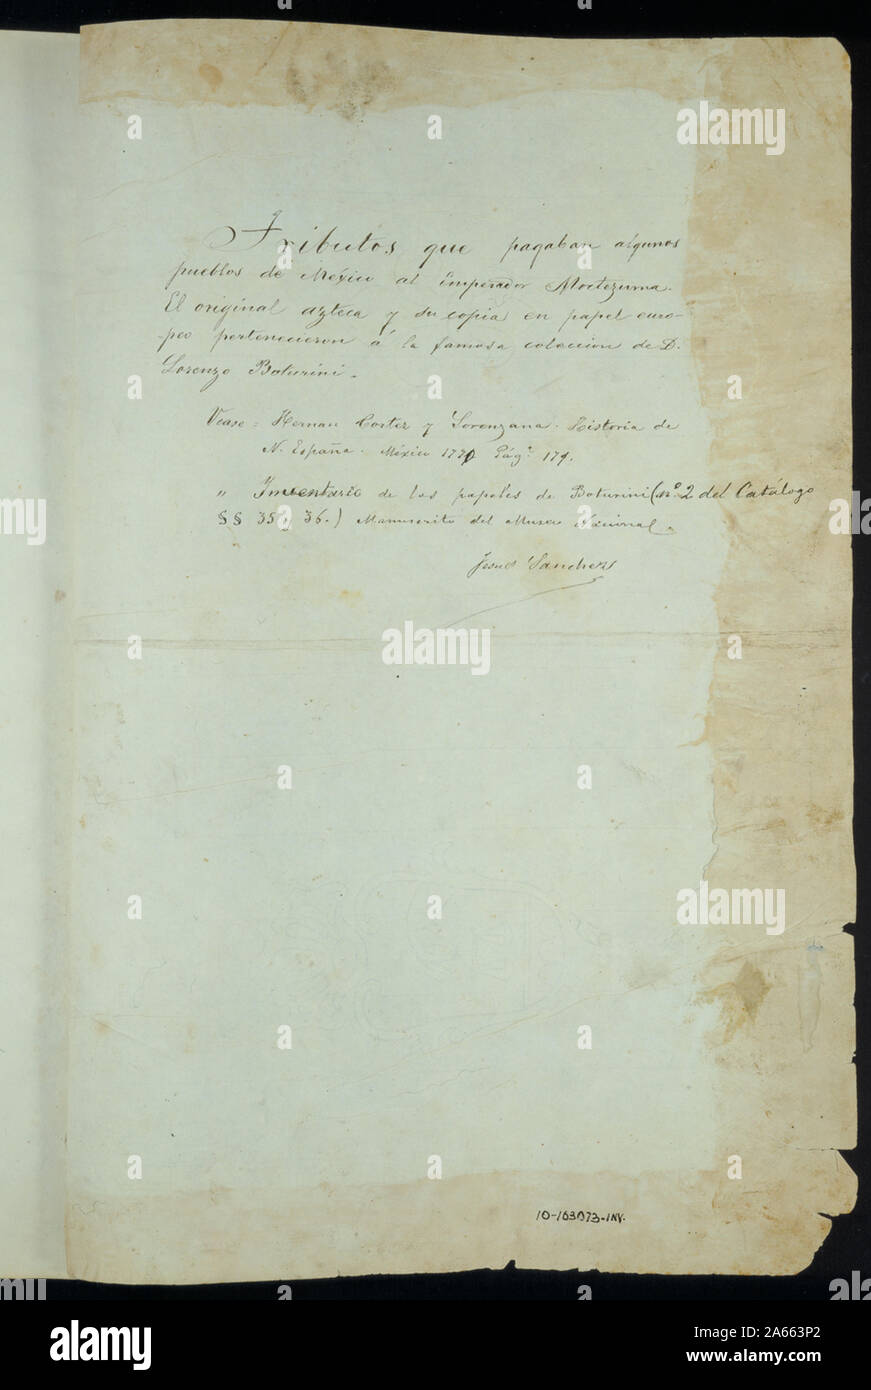 Tributos que pagaban algunos
pueblos de México al Emperador Moctezuma.
El original azteca y su copia en papel euro-
-peo pertenecieron á la famosa coleccion de D.
Lorenzo Boturini.
Vease = Hernan Cortez y Lorenzana. Historia de
N. España. México 1770 Pág.ª 171.
" Inventario de los papeles de Boturini (nº 2 del Catálogo
§§ 35 y 36.) Manuscrito del Museo Nacional.
Jesus Sanchez
10-163073-INV.
alamy
alamy
Image ID: 2A663P2
www.alamy.com